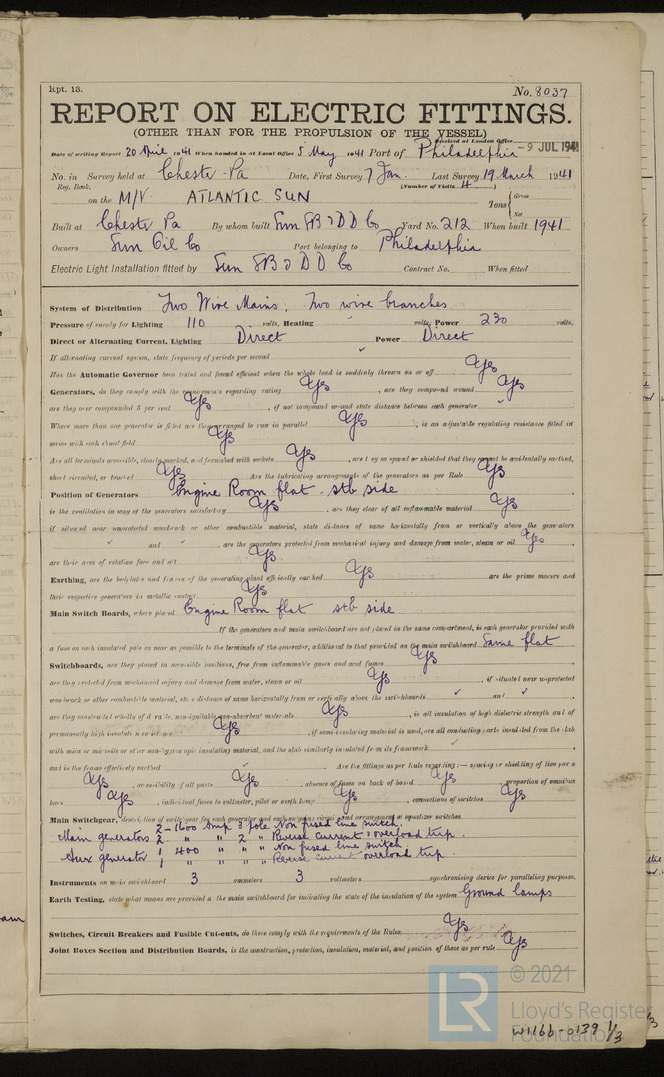 Rpt. 13.
No. 8037
REPORT ON ELECTRIC FITTINGS.
(OTHER THAN FOR THE PROPULSION OF THE VESSEL)
Received at London Office -9 JUL 1941
Date of writing Report 20 April 1941 When handed in at Local Office 5 May 1941 Port of Philadelphia
No. in Survey held at Chester Pa Date, First Survey 7 Jan. Last Survey 19 March 1941
Reg. Book. (Number of Visits 4)
on the M/V. ATLANTIC SUN Tons { Gross Net
Built at Chester Pa By whom built Sun SB & D D Co Yard No. 212 When built 1941
Owners Sun Oil Co Port belonging to Philadelphia
Electric Light Installation fitted by Sun SB & D D Co Contract No. When fitted
System of Distribution Two Wire Mains, Two wire branches
Pressure of supply for Lighting 110 volts, Heating volts, Power 230 volts.
Direct or Alternating Current, Lighting Direct Power Direct
If alternating current system, state frequency of periods per second ✓
Has the Automatic Governor been tested and found efficient when the whole load is suddenly thrown on or off Yes
Generators, do they comply with the requirements regarding rating Yes, are they compound wound Yes
are they over compounded 5 per cent Yes, if not compound wound state distance between each generator ✓
Where more than one generator is fitted are they arranged to run in parallel Yes, is an adjustable regulating resistance fitted in
series with each shunt field Yes
Are all terminals accessible, clearly marked, and furnished with sockets Yes, are they so spaced or shielded that they cannot be accidentally earthed,
short circuited, or touched Yes Are the lubricating arrangements of the generators as per Rule Yes
Position of Generators Engine Room flat stb side
is the ventilation in way of the generators satisfactory Yes, are they clear of all inflammable material Yes
if situated near unprotected woodwork or other combustible material, state distance of same horizontally from or vertically above the generators
✓ and ✓, are the generators protected from mechanical injury and damage from water, steam or oil Yes
are their axes of rotation fore and aft Yes
Earthing, are the bedplates and frames of the generating plant efficiently earthed Yes are the prime movers and
their respective generators in metallic contact Yes
Main Switch Boards, where placed Engine Room flat stb side
If the generators and main switchboard are not placed in the same compartment, is each generator provided with
a fuse on each insulated pole as near as possible to the terminals of the generator, additional to that provided on the main switchboard Same flat
Switchboards, are they placed in accessible positions, free from inflammable gases and acid fumes Yes
are they protected from mechanical injury and damage from water, steam or oil Yes, if situated near unprotected
woodwork or other combustible material, state distance of same horizontally from or vertically above the switchboards ✓ and ✓
are they constructed wholly of durable, non-ignitable non-absorbent materials Yes, is all insulation of high dielectric strength and of
permanently high insulation resistance Yes, if semi-insulating material is used, are all conducting parts insulated from the slab
with mica or micanite or other non-hygroscopic insulating material, and the slab similarly insulated from its framework ✓
and is the frame effectively earthed ✓ Are the fittings as per Rule regarding:— spacing or shielding of live parts
Yes, accessibility of all parts Yes, absence of fuses on back of board Yes, proportion of omnibus
bars Yes, individual fuses to voltmeter, pilot or earth lamp Yes, connections of switches Yes
Main Switchgear, description of switchgear for each generator and each outgoing circuit and arrangement of equalizer switches
2 - 1600 Amp 3 pole Non fused line switch.
Main generators 2 " " 2 " Reverse current & overload trip.
Aux generator 1 400 " " " Non fused line switch
1 " " " " Reverse current overload trip.
Instruments on main switchboard 3 ammeters 3 voltmeters synchronising device for paralleling purposes.
Earth Testing, state what means are provided at the main switchboard for indicating the state of the insulation of the system Ground lamps
Switches, Circuit Breakers and Fusible Cut-outs, do these comply with the requirements of the Rules Yes
Joint Boxes Section and Distribution Boards, is the construction, protection, insulation, material, and position of these as per rule Yes
© 2021
LR
Lloyd's Register
Foundation
W1166-0139 1/3